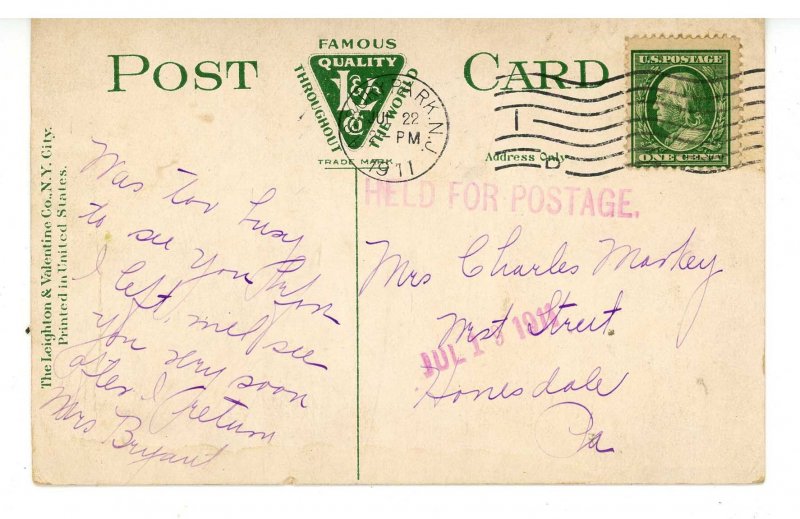 FAMOUS
POST CARD
QUALITY
THROUGHOUT
THE WORLD
L&V
Co
TRADE MARK
PARK, N.J.
22
PM
1911
I
D
U.S. POSTAGE
ONE CENT
Address Only
HELD FOR POSTAGE.
The Leighton & Valentine Co., N.Y. City.
Printed in United States.
Was too busy
to see you before
I left, will see
you very soon
after I return
Mrs Bryant
Mrs Charles Markey
West Street
JUL 18 1911
Honesdale
Pa